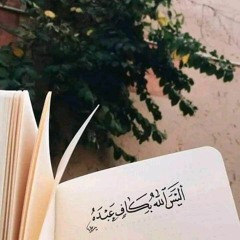 أَلَيْسَ اللهُ بِكَافٍ عَبْدَهُ